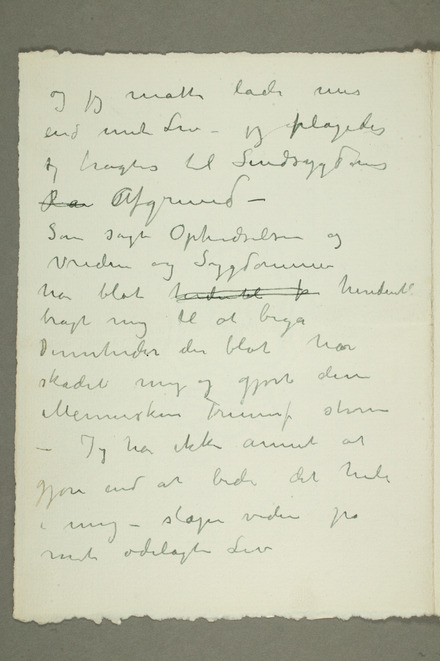 og jeg måtte lade min
end mit Liv – jeg plagedes
og bragtes til Sindsygdoms
Afgrund –
Som sagt Ophidselsen og
Vreden og Sygdommen
har blot hindtil
bragt mig til at begå
Dumheder der blot har
skadet mig og gjort disse
Menneskers Triumf større
– Jeg har ikke annet at
gjøre end at bide det hele
i mig – slæpe videre på
mit ødelagte Liv